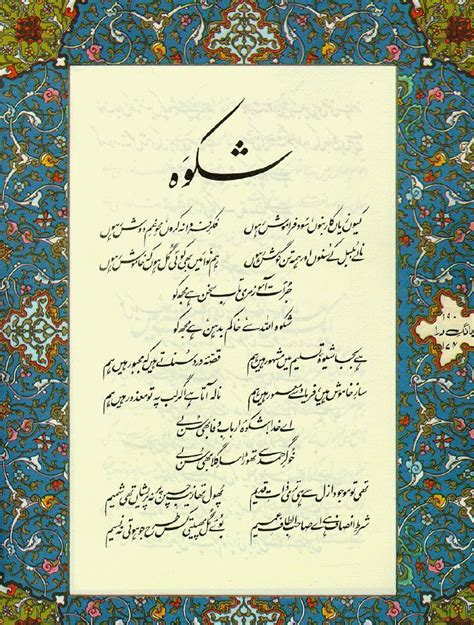 شکوہ
کیوں زیاں کار بنوں سود فراموش رہوں فکرِ فردا نہ کروں محوِ غمِ دوش رہوں
نالے بلبل کے سنوں اور ہمہ تن گوش رہوں ہم نوا میں بھی کوئی گل ہوں کہ خاموش رہوں
جرأت آموز مری تابِ سخن ہے مجھ کو
شکوہ اللہ سے خاکم بدہن ہے مجھ کو
ہے بجا شیوۂ تسلیم میں مشہور ہیں ہم قصۂ درد سناتے ہیں کہ مجبور ہیں ہم
سازِ خاموش ہیں فریاد سے معمور ہیں ہم نالہ آتا ہے اگر لب پہ تو معذور ہیں ہم
اے خدا شکوۂ اربابِ وفا بھی سن لے
خوگرِ حمد سے تھوڑا سا گلا بھی سن لے
تھی تو موجود ازل سے ہی تری ذاتِ قدیم پھول تھا زیبِ چمن پر نہ پریشاں تھی شمیم
شرط انصاف ہے اے صاحبِ الطافِ عمیم بوئے گل پھیلتی کس طرح جو ہوتی نہ نسیم
بانگِ درا